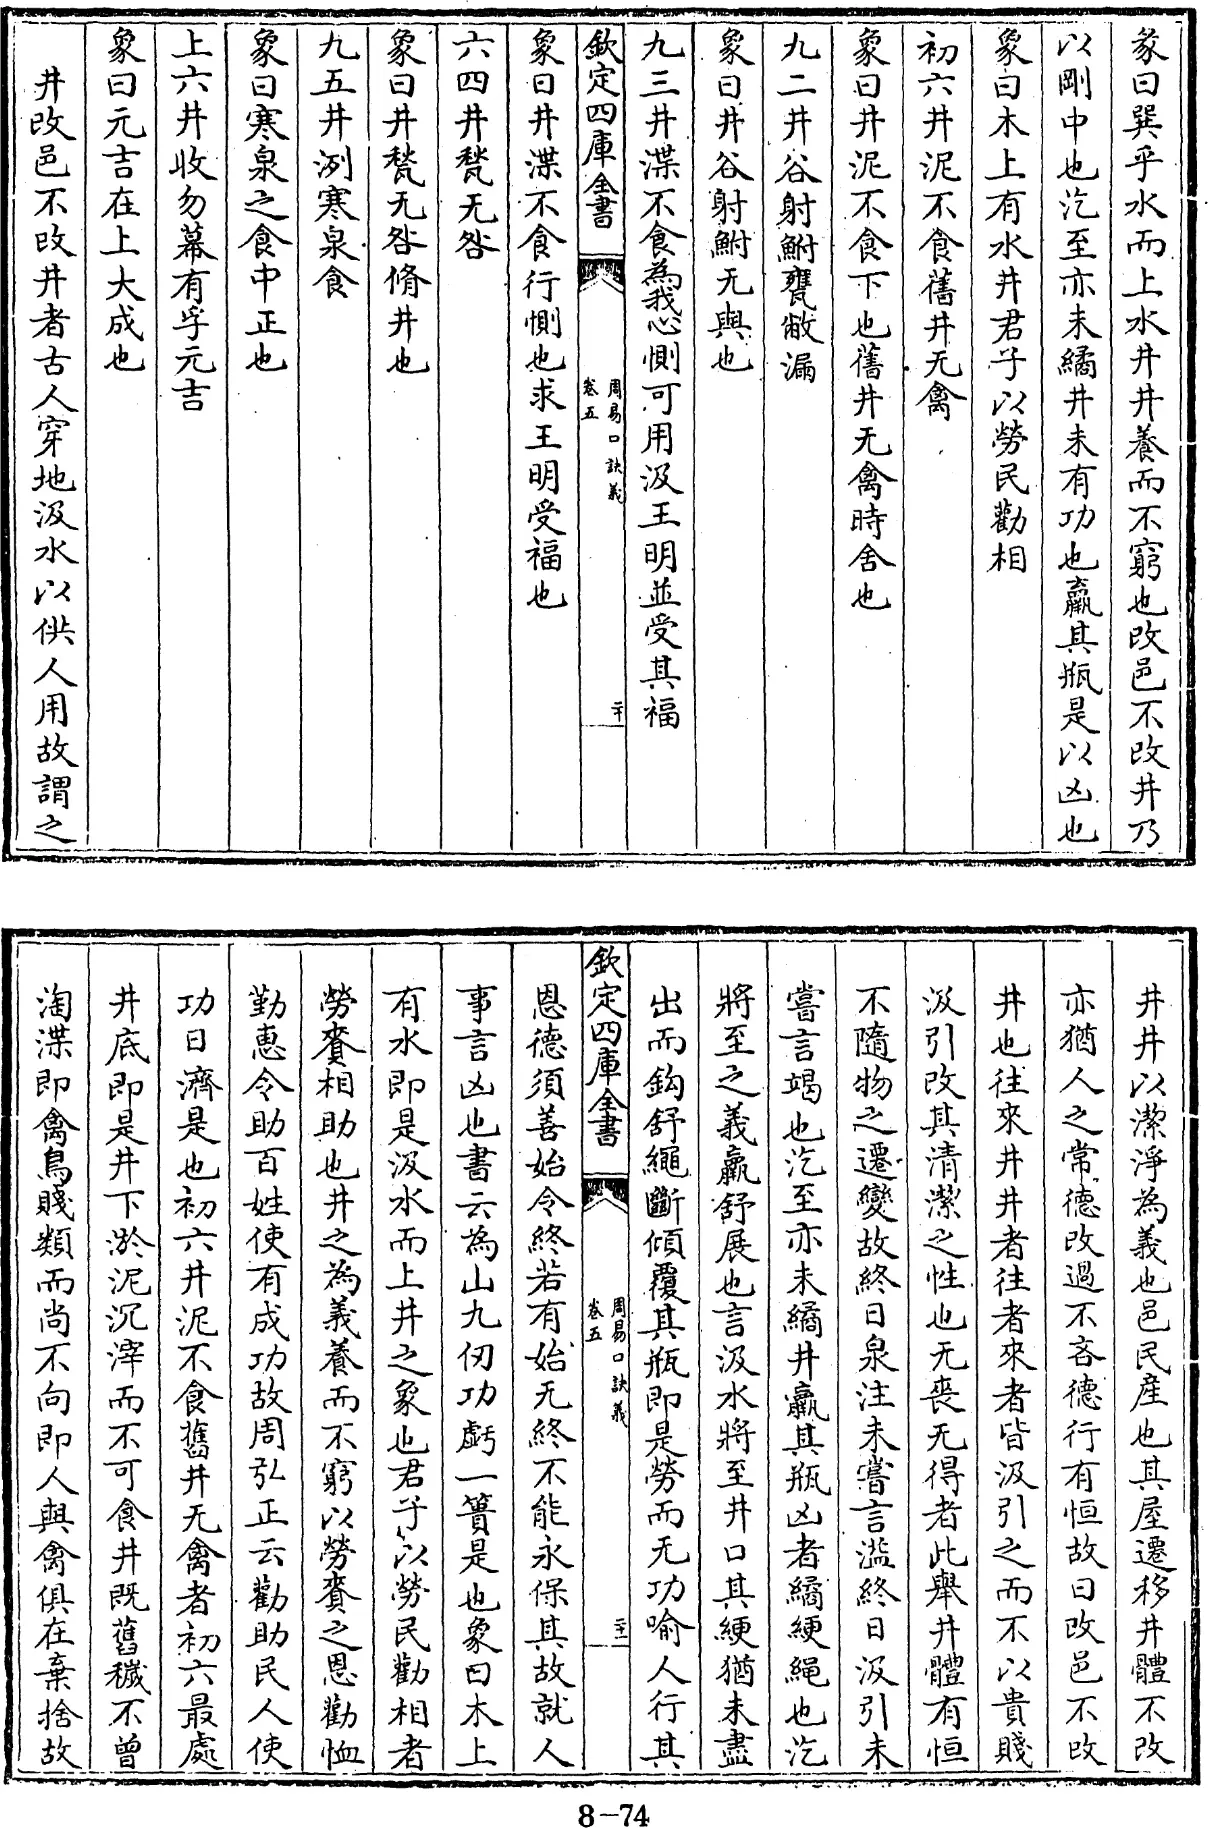 彖曰巽乎水而上水井井養而不窮也改邑不改井乃
以剛中也汔至亦未繘井未有功也羸其瓶是以凶也
象曰木上有水井君子以勞民勸相
初六井泥不食舊井无禽
象曰井泥不食下也舊井无禽時舍也
九二井谷射鮒甕敝漏
象曰井谷射鮒无與也
九三井渫不食為我心惻可用汲王明並受其福
欽定四庫全書
周易口訣義
卷五
二十
象曰井渫不食行惻也求王明受福也
六四井甃无咎
象曰井甃无咎脩井也
九五井洌寒泉食
象曰寒泉之食中正也
上六井收勿幕有孚元吉
象曰元吉在上大成也
井改邑不改井者古人穿地汲水以供人用故謂之
井井以潔淨為義也邑民產也其屋遷移井體不改
亦猶人之常德改過不吝德行有恒故曰改邑不改
井也往來井井者往者來者皆汲引之而不以貴賤
汲引改其清潔之性也无喪无得者此舉井體有恒
不隨物之遷變故終日泉注未嘗言溢終日汲引未
嘗言竭也汔至亦未繘井羸其瓶凶者繘綆繩也汔
將至之義羸舒展也言汲水將至井口其綆猶未盡
出而鈎舒繩斷傾覆其瓶即是勞而无功喻人行其
欽定四庫全書
周易口訣義
卷五
二十一
恩德須善始令終若有始无終不能永保其故就人
事言凶也書云為山九仞功虧一簣是也象曰木上
有水即是汲水而上井之象也君子以勞民勸相者
勞賚相助也井之為義養而不窮以勞賚之恩勸恤
勤惠令助百姓使有成功故周弘正云勸助民人使
功日濟是也初六井泥不食舊井无禽者初六最處
井底即是井下淤泥沉滓而不可食井既舊穢不曾
淘渫即禽鳥賤類而尚不向即人與禽俱在棄捨故
8-74